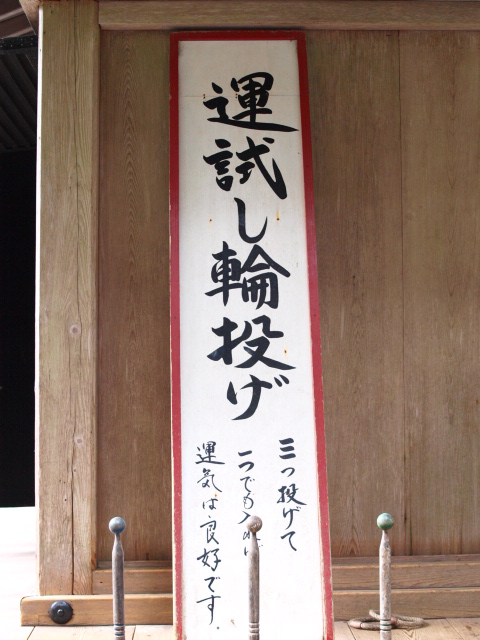 運試し輪投げ
三つ投げて
一つでも入れば
運気は良好です.